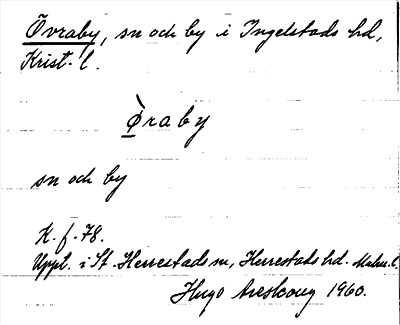 Övraby, sn och by i Ingelstads hd,
Krist. l.
Òraby
sn och by
K. f. 78.
Uppt. i St. Herrestads sn, Herrestads hd. Malm. l.
Hugo Areskoug 1960.